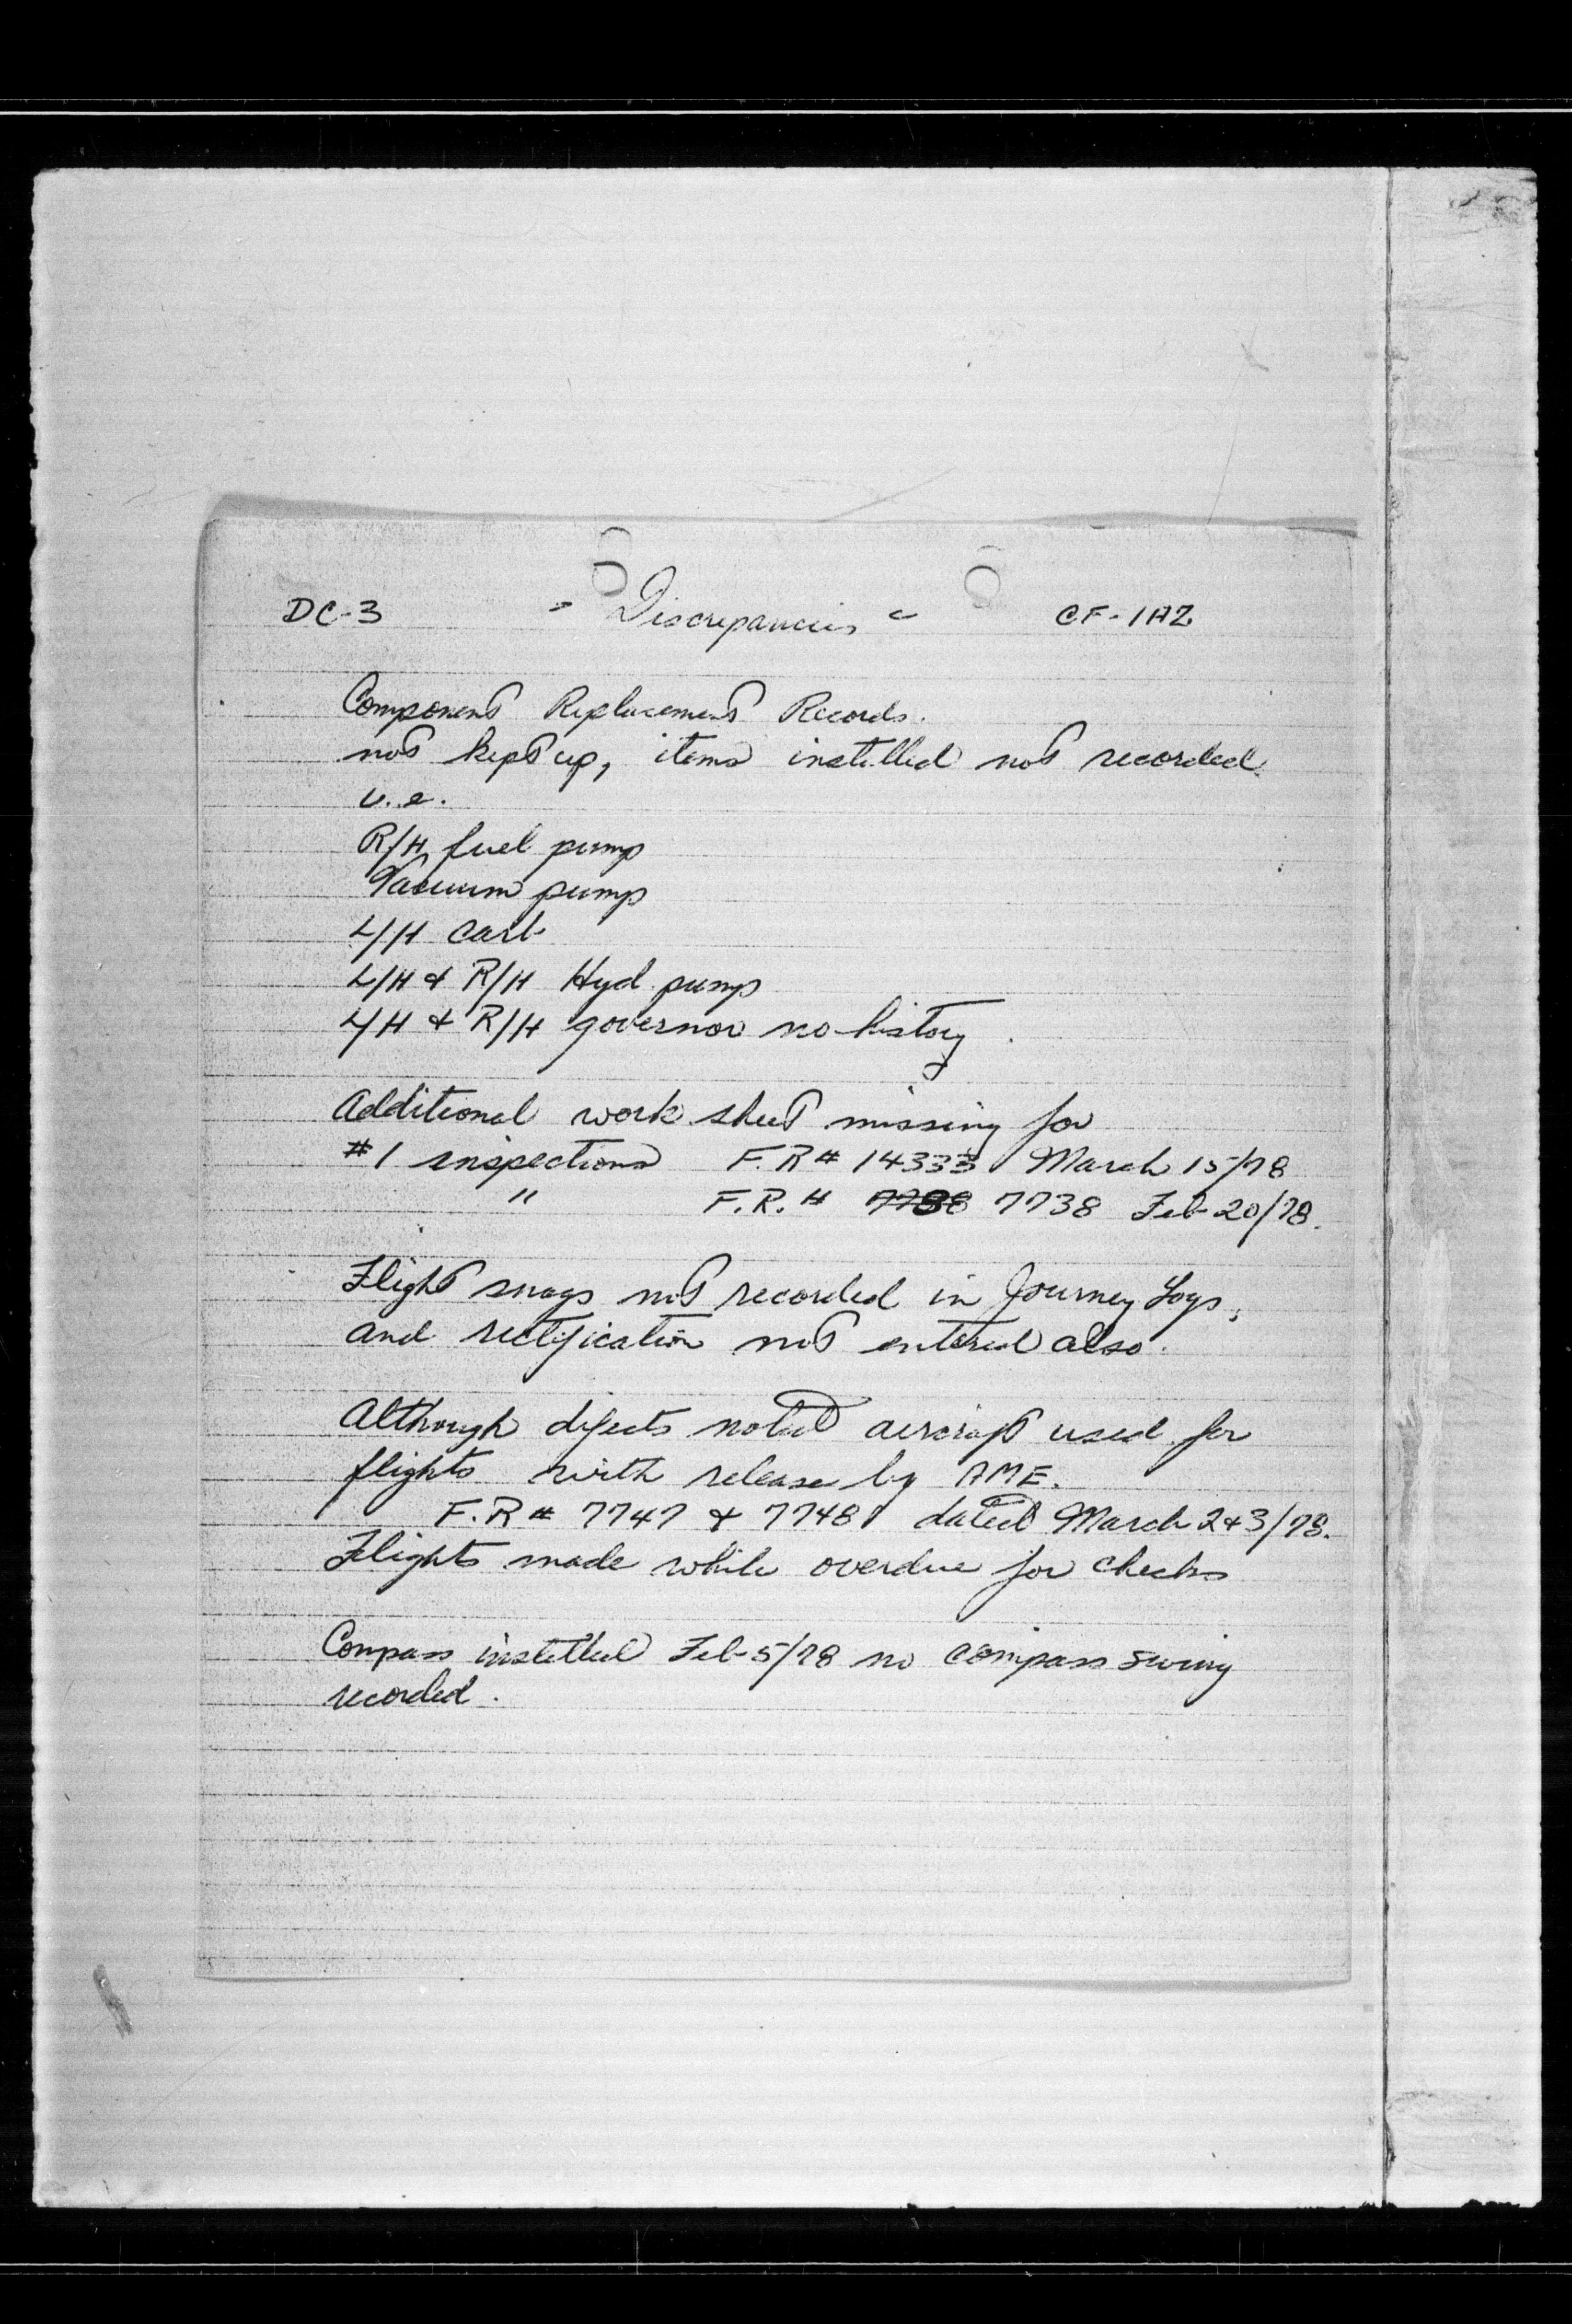 DC-3 - Discrepancies - CF-IAZ
Component Replacement Records.
not kept up, items installed not recorded.
i.e.
R/H fuel pump
Vacuum pump
L/H carb
L/H & R/H Hyd. pump
L/H & R/H governor no history.
Additional work sheet missing for
#1 inspections F.R # 14333 March 15/78
" F.R. # 7738 Feb 20/78.
Flight snags not recorded in Journey Logs,
and rectification not entered also.
Although defects noted aircraft used for
flights with release by AME.
F.R # 7747 & 7748 dated March 2&3/78.
Flights made while overdue for checks
Compass installed Feb-5/78 no compass swing
recorded.